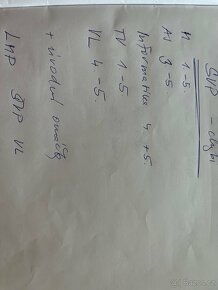 ŠVP - chybí
M 1.-5.
AJ 3-5
Informatika 4.+5.
TV 1-5
VL 4-5.
+ úvodní omáčky
LMP ŠVP VL